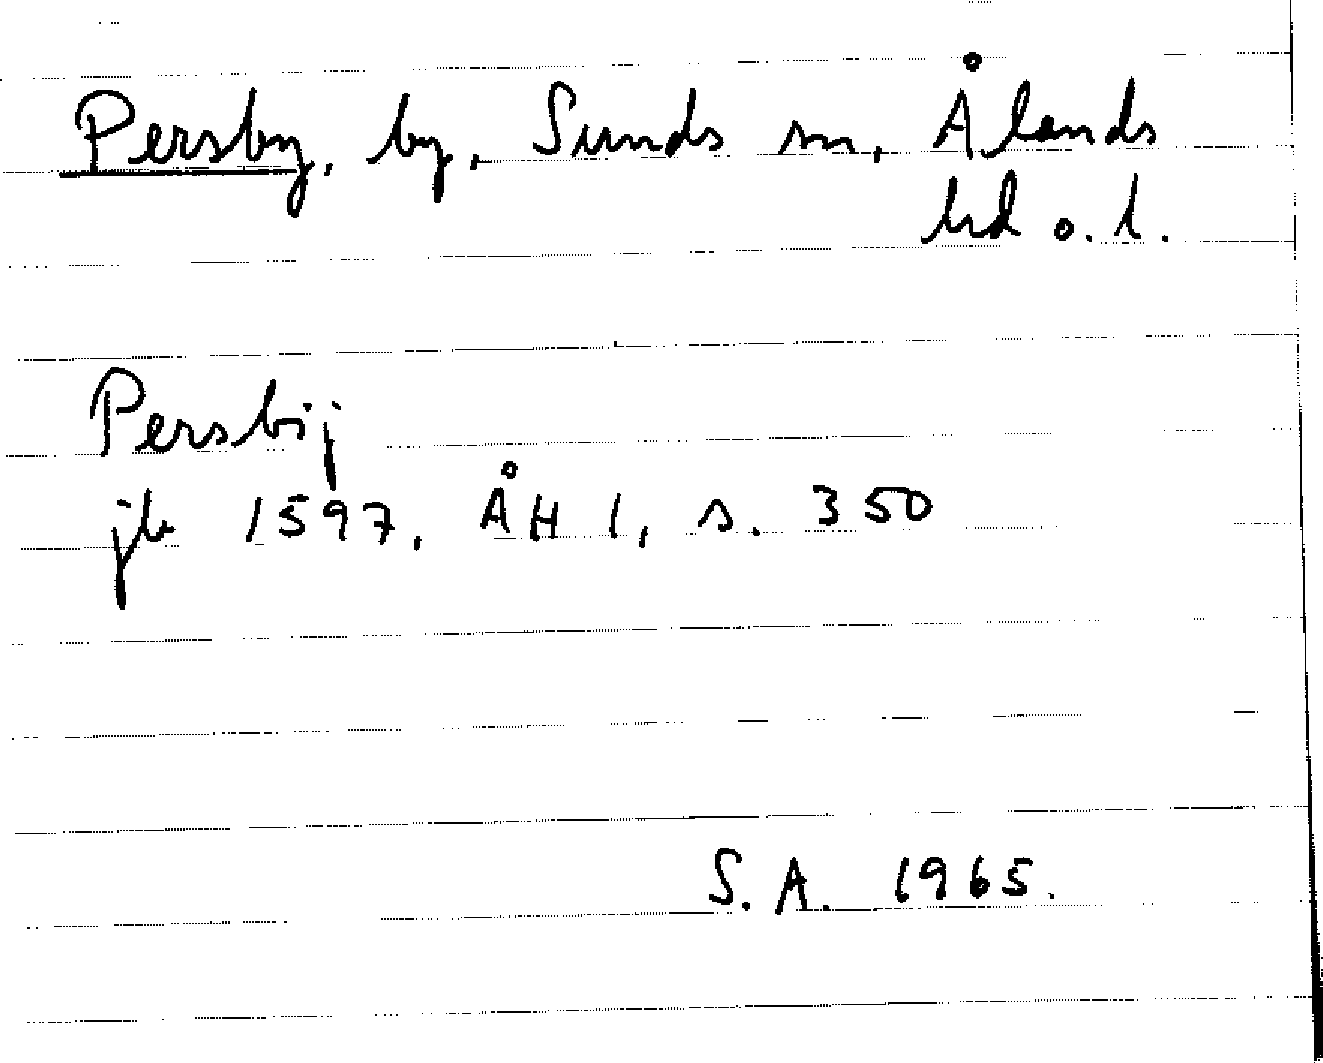 Persby, by, Sunds sn, Ålands
hd o. l.
Persbij
jb 1597, ÅH 1, s. 350
S. A. 1965.